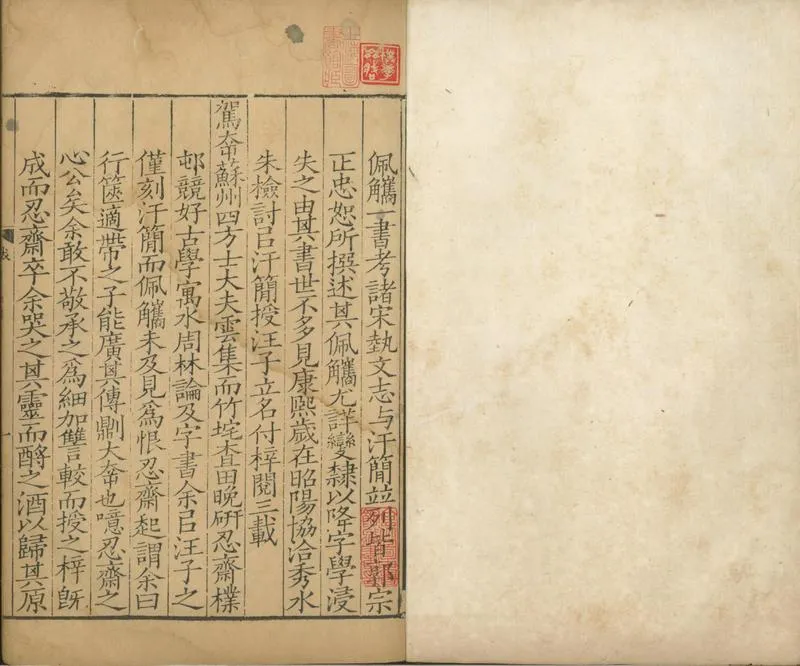 佩觿一書考諸宋埶文志与汗簡並列皆郭宗
正忠恕所撰述其佩觿尤詳變隸以降字學浸
失之由其書世不多見康熙歲在昭陽協洽秀水
朱檢討㠯汗簡授汪子立名付梓閱三載
駕幸蘇州四方士大夫雲集而竹垞查田晚研忍齋樸
邨競好古學寓水周林論及字書余㠯汪子之
僅刻汗簡而佩觿未及見爲恨忍齋起謂余曰
行篋適帶之子能廣其傳𠟭大幸也噫忍齋之
心公矣余敢不敬承之爲細加讐較而授之梓旣
成而忍齋卒余哭之其靈而酹之酒以歸其原